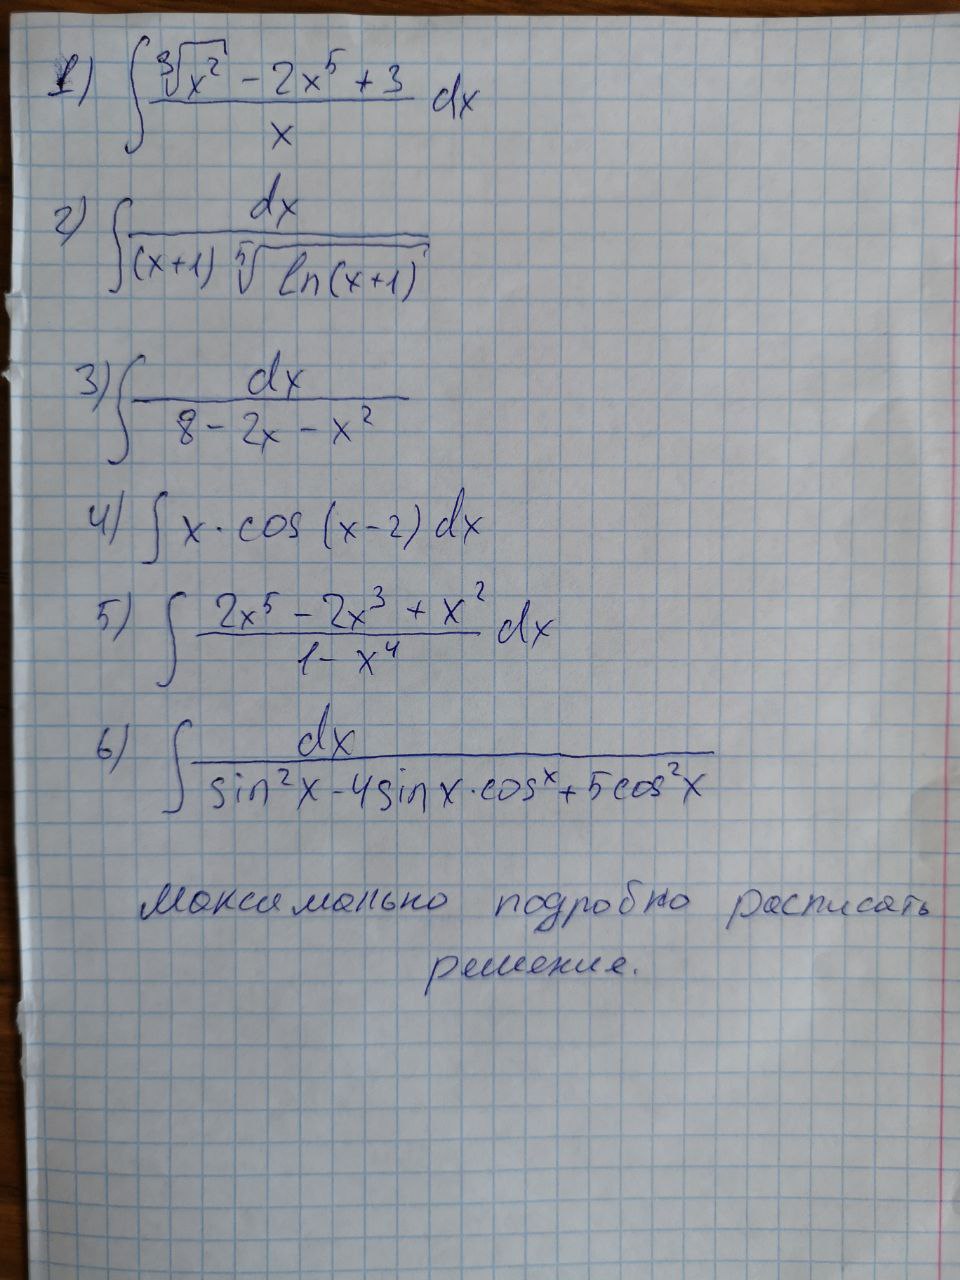 1) ∫ (∛x² - 2x⁵ + 3)/x dx
2) ∫ dx/((x+1) ⁵√ln(x+1))
3) ∫ dx/(8 - 2x - x²)
4) ∫ x · cos (x-2) dx
5) ∫ (2x⁵ - 2x³ + x²)/(1 - x⁴) dx
6) ∫ dx/(sin²x - 4sin x · cos x + 5cos²x)
Максимально подробно расписать
решение.